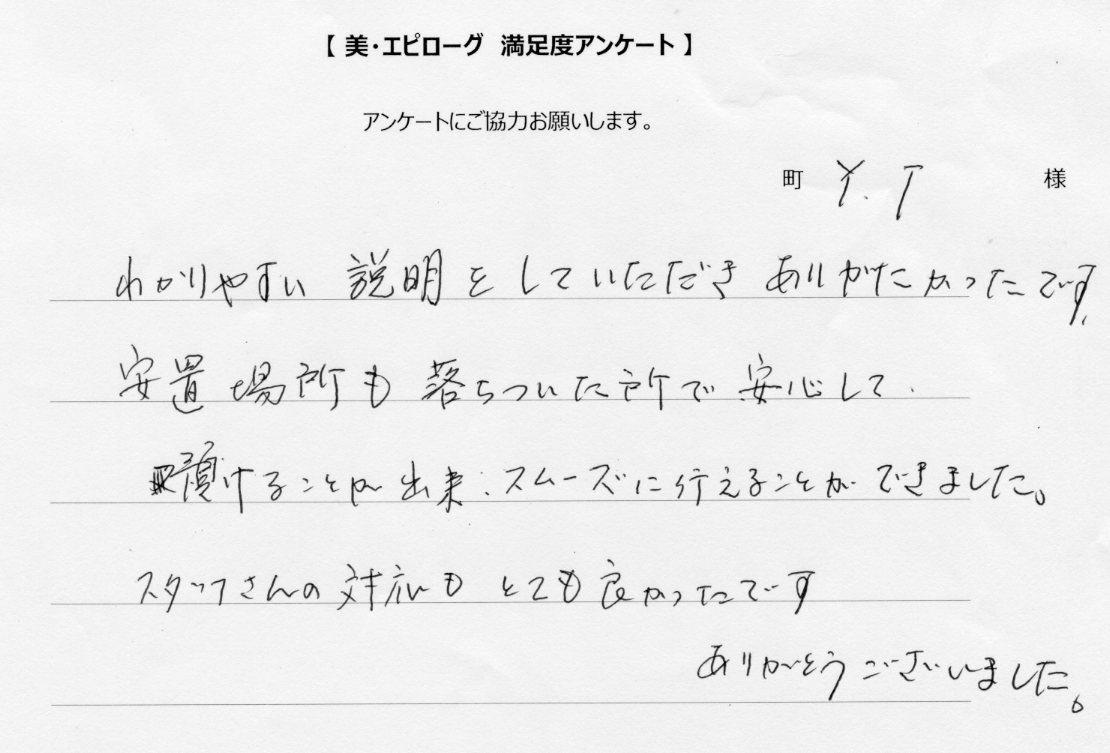 【 美・エピローグ 満足度アンケート 】
アンケートにご協力お願いします。
町 Y.T 様
わかりやすい 説明をしていただき ありがたかったです、
安置場所も 落ちついた所で 安心して
預けることが出来、スムーズに行えることができました。
スタッフさんの対応も とても良かったです
ありがとうございました。